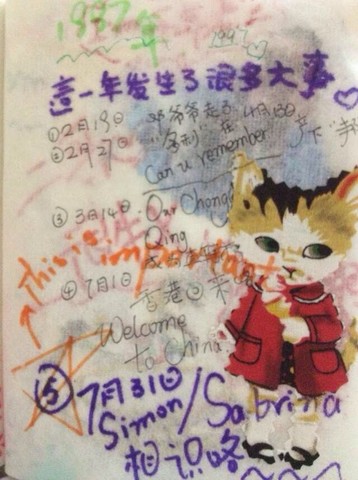 1997年
1997
這一年发生了很多大事
①2月19日 邓爷爷走了
②2月27日 "多利"在
4月13日
Can u remember
③3月14日. Our Chong
Qing
成为直辖
This is important
④7月1日 香港回来
Welcome
to China!
⑤7月31日
Simon/Sabrina
相识咯